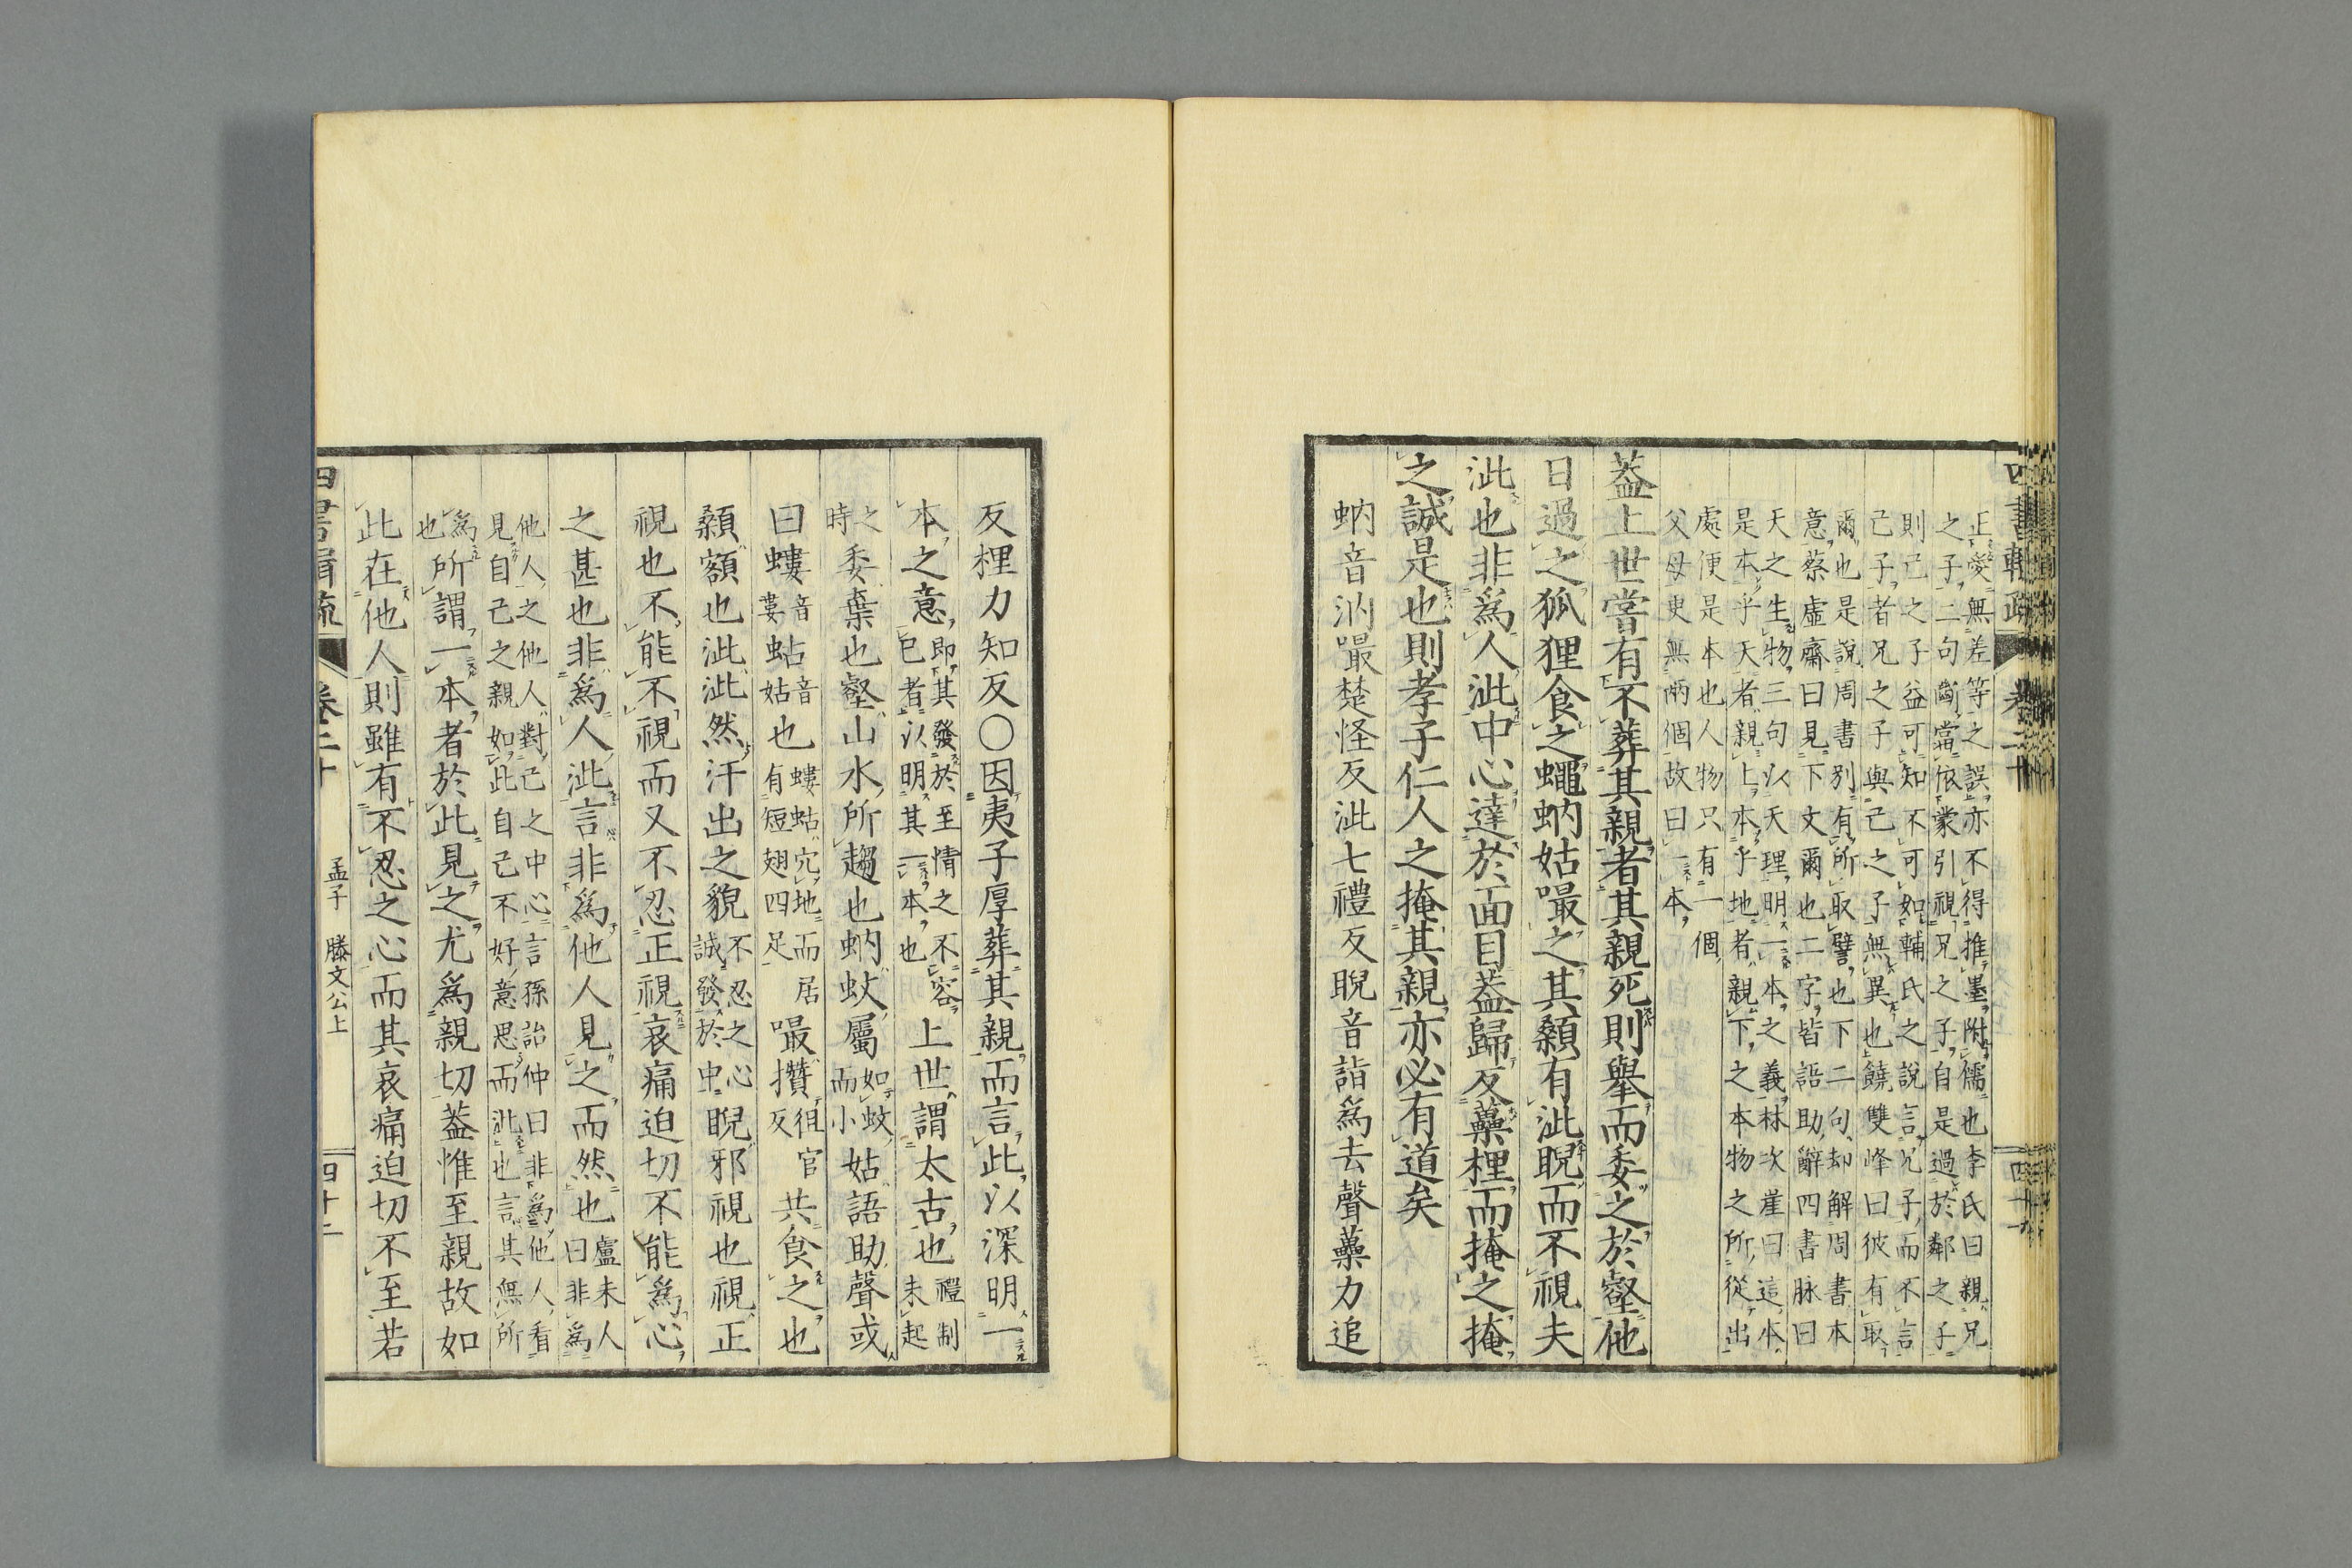 四書輯疏 卷二十 四十一
正愛無差等之誤亦不得推墨附儒也李氏曰親兄
之子二句斷當依蒙引視兄之子自是過於鄰之子
則己之子益可知不可如輔氏之說言兄子而不言
己子者兄之子與己之子無異也饒雙峰曰彼有取
爾也是說周書別有所取譬也下二句却解周書本
意蔡虛齋曰見下文爾也二字皆語助辭四書脉曰
天之生物三句以天理明一本之義林次崖曰這本
是本乎天者親上本乎地者親下之本物之所從出
處便是本也人物只有一個
父母更無兩個故曰一本
葢上世嘗有不葬其親者其親死則舉而委之於壑他
日過之狐狸食之蠅蚋姑嘬之其顙有泚睨而不視夫
泚也非爲人泚中心達於面目葢歸反虆梩而掩之掩
之誠是也則孝子仁人之掩其親亦必有道矣
蚋音汭嘬楚怪反泚七禮反睨音詣爲去聲虆力追
反梩力知反〇因夷子厚葬其親而言此以深明一
本之意即其發於至情之不容已者以明其一本也上世謂太古也禮制未起
之時委棄也壑山水所趨也蚋蚊屬如蚊而小姑語助聲或
曰螻音蔞蛄音姑也螻蛄穴地而居有短翅四足嘬攢徂官反共食之也
顙額也泚泚然汗出之貌不忍之心誠發於中睨邪視也視正
視也不能不視而又不忍正視哀痛迫切不能爲心
之甚也非爲人泚言非爲他人見之而然也盧未人曰非爲
他人之他人對己之中心言孫詒仲曰非爲他人看
見自己之親如此自己不好意思而泚也言其無所
爲也所謂一本者於此見之尤爲親切葢惟至親故如
此在他人則雖有不忍之心而其哀痛迫切不至若
四書輯疏 卷二十 孟子 滕文公上 四十二